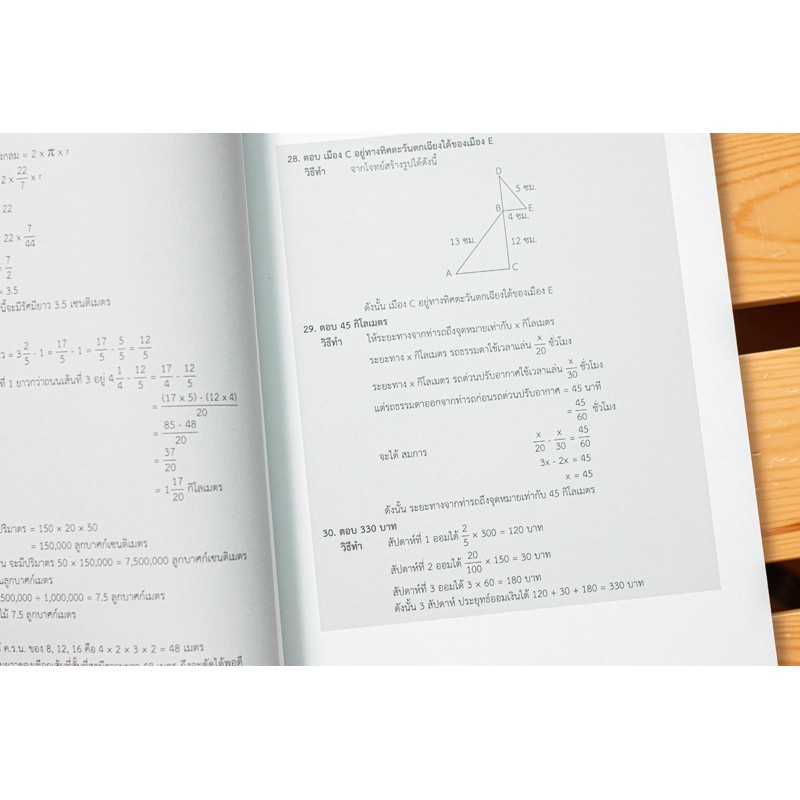 งกลม = 2 x π x r
2 x 22/7 x r
22
22 x 7/44
7/2
= 3.5
นี้จะมีรัศมียาว 3.5 เซนติเมตร
ว = 3 2/5 - 1 = 17/5 - 1 = 17/5 - 5/5 = 12/5
ที่ 1 ยาวกว่าถนนเส้นที่ 3 อยู่ 4 1/4 - 12/5 = 17/4 - 12/5
= (17 x 5) - (12 x 4)/20
= 85 - 48/20
= 37/20
= 1 17/20 กิโลเมตร
ปริมาตร = 150 × 20 × 50
= 150,000 ลูกบาศก์เซนติเมตร
น จะมีปริมาตร 50 × 150,000 = 7,500,000 ลูกบาศก์เซนติเมตร
นลูกบาศก์เมตร
500,000 ÷ 1,000,000 = 7.5 ลูกบาศก์เมตร
ไม้ 7.5 ลูกบาศก์เมตร
ค.ร.น. ของ 8, 12, 16 คือ 4 × 2 × 3 × 2 = 48 เมตร
28. ตอบ เมือง C อยู่ทางทิศตะวันตกเฉียงใต้ของเมือง E
วิธีทำ จากโจทย์สร้างรูปได้ดังนี้
D
5 ซม.
B E
4 ซม.
13 ซม. 12 ซม.
A C
ดังนั้น เมือง C อยู่ทางทิศตะวันตกเฉียงใต้ของเมือง E
29. ตอบ 45 กิโลเมตร
วิธีทำ ให้ระยะทางจากท่ารถถึงจุดหมายเท่ากับ x กิโลเมตร
ระยะทาง x กิโลเมตร รถธรรมดาใช้เวลาแล่น x/20 ชั่วโมง
ระยะทาง x กิโลเมตร รถด่วนปรับอากาศใช้เวลาแล่น x/30 ชั่วโมง
แต่รถธรรมดาออกจากท่ารถก่อนรถด่วนปรับอากาศ = 45 นาที
= 45/60 ชั่วโมง
จะได้ สมการ x/20 - x/30 = 45/60
3x - 2x = 45
x = 45
ดังนั้น ระยะทางจากท่ารถถึงจุดหมายเท่ากับ 45 กิโลเมตร
30. ตอบ 330 บาท
วิธีทำ สัปดาห์ที่ 1 ออมได้ 2/5 × 300 = 120 บาท
สัปดาห์ที่ 2 ออมได้ 20/100 × 150 = 30 บาท
สัปดาห์ที่ 3 ออมได้ 3 × 60 = 180 บาท
ดังนั้น 3 สัปดาห์ ประยุทธ์ออมเงินได้ 120 + 30 + 180 = 330 บาท